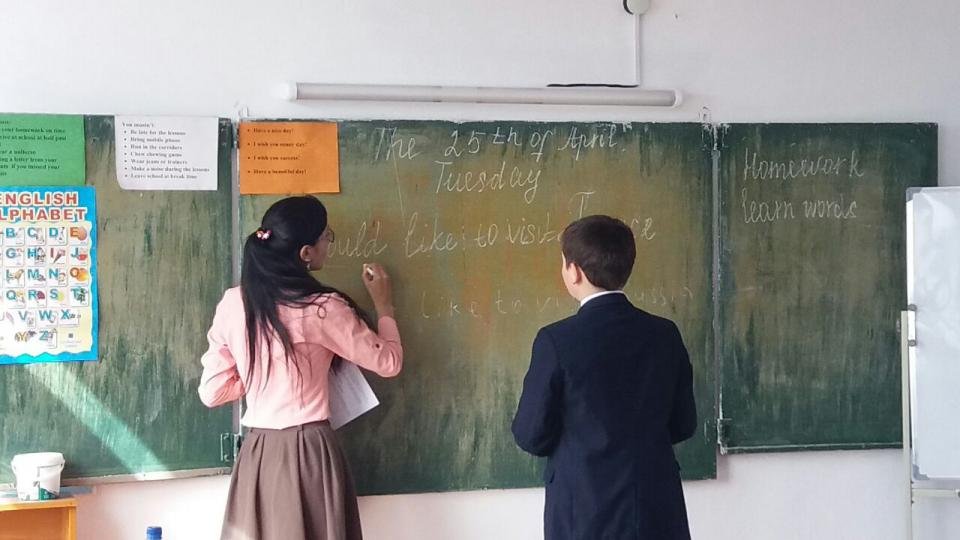 your homework on time
at school at half past
wear a uniform
a letter from your
if you missed your
You mustn't:
Be late for the lessons
Bring mobile phone
Run in the corridors
Chew chewing gum
Wear jeans or trainers
Make a noise during the lessons
Leave school at break time
Have a nice day!
I wish you sunny day!
I wish you success!
Have a beautiful day!
ENGLISH
ALPHABET
B C D E
G H I J
L M N O
Q R S T
V W X
Y Z
The 25th of April.
Tuesday
like to visit
like to
Homework
learn words